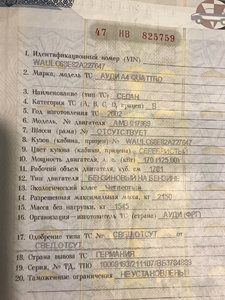 47 НВ 825759
1. Идентификационный номер (VIN)
WAULC68E82A227847
2. Марка, модель ТС АУДИ A4 QUATTRO
3. Наименование (тип ТС) СЕДАН
4. Категория ТС (А, В, С, D, прицеп) B
5. Год изготовления ТС 2002
6. Модель, № двигателя
7. Шасси (рама) № ОТСУТСТВУЕТ
8. Кузов (кабина, прицеп) № WAULC68E82A227847
9. Цвет кузова (кабины, прицепа) СЕРЕБРИСТЫЙ
10. Мощность двигателя, л. с. (кВт) 170 (125.00)
11. Рабочий объем двигателя, куб. см 1781
12. Тип двигателя БЕНЗИНОВЫЙ НА БЕНЗИНЕ
13. Экологический класс Четвертый
14. Разрешенная максимальная масса, кг 2150
15. Масса без нагрузки, кг
16. Организация—изготовитель ТС (страна) АУДИ (ФРГ)
17. Одобрение типа ТС № СВЕД.ОТСУТ от
СВЕД.ОТСУТ
18. Страна вывоза ТС ГЕРМАНИЯ
19. Серия, № ТД, ТПО
20. Таможенные ограничения НЕ УСТАНОВЛЕНЫ